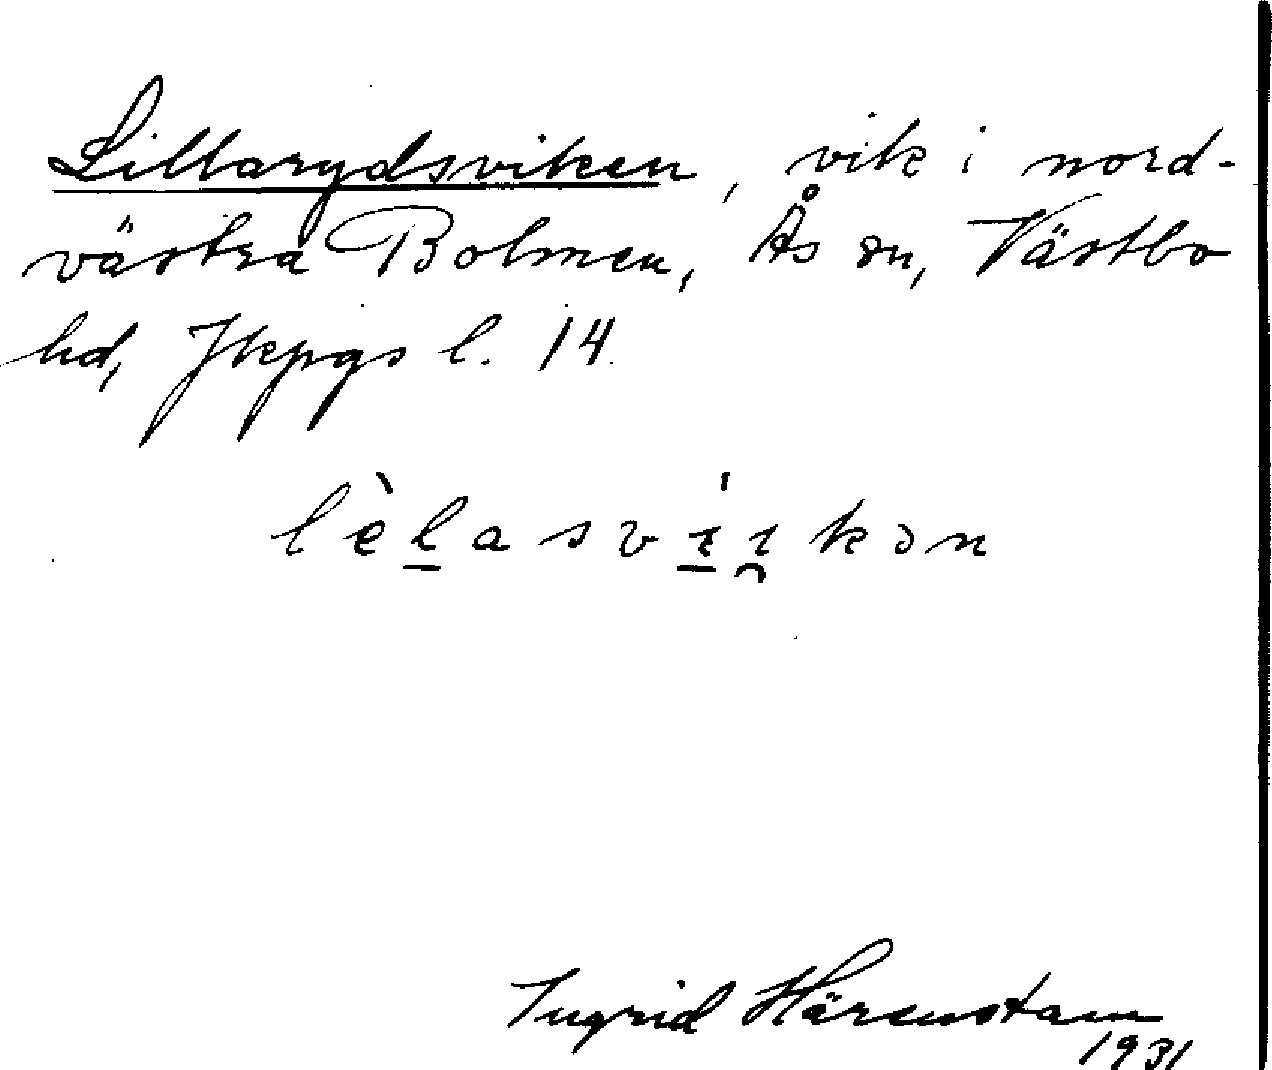 Lillarydsviken, vik i nord-
västra Bolmen, Ås sn, Västbo
hd, Jkpgs l. 14.
lèlasvíi̯kən
Ingrid Härenstam
1931